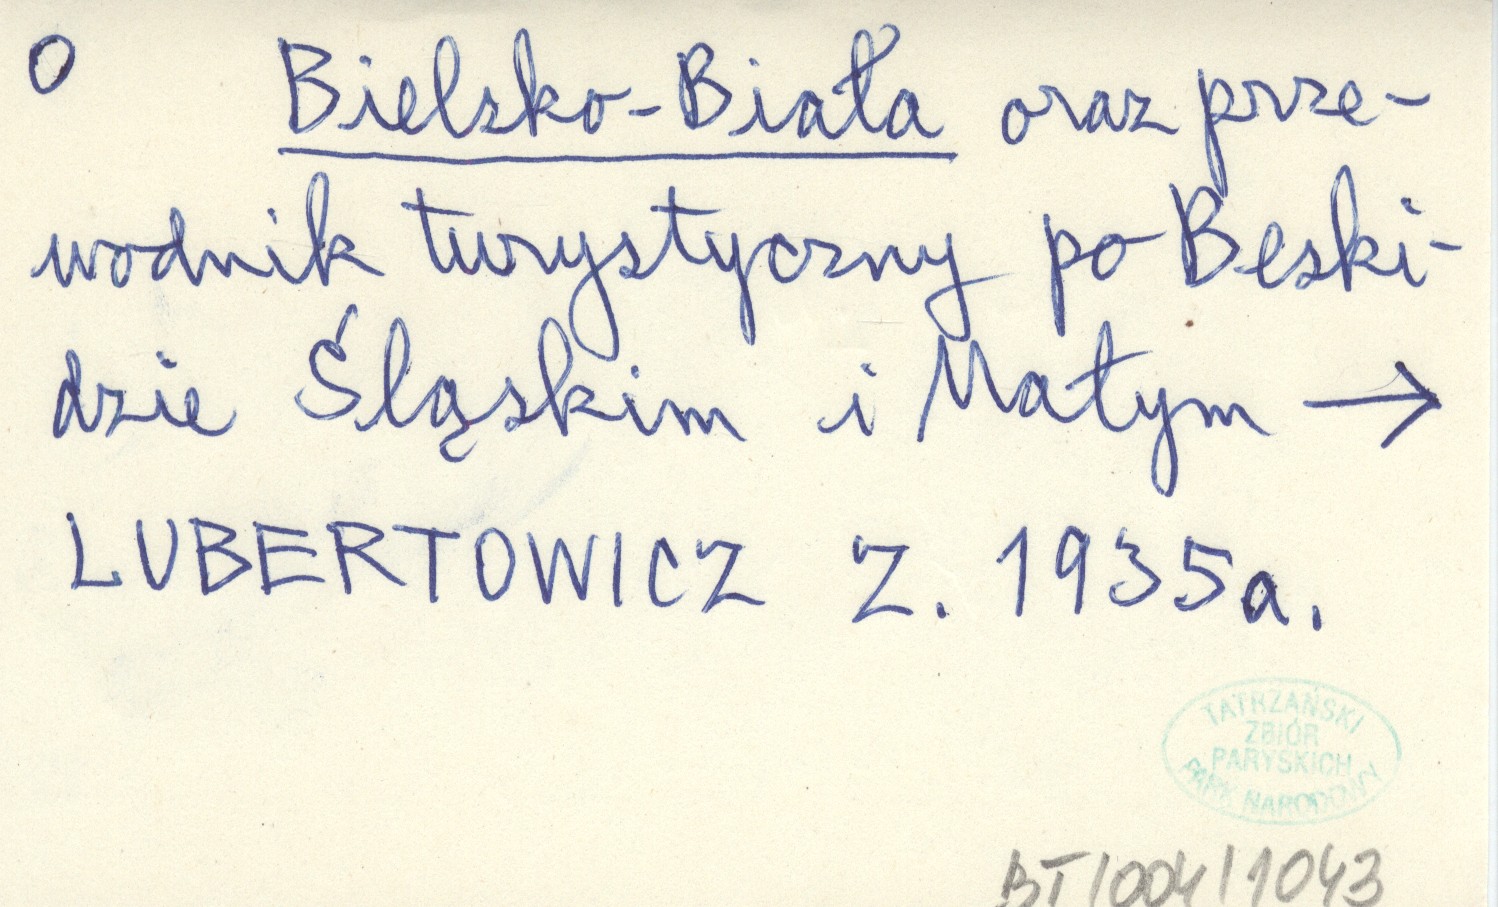 O Bielsko-Biała oraz prze-
wodnik turystyczny po Beski-
dzie Śląskim i Małym →
LUBERTOWICZ Z. 1935a.
TATRZAŃSKI
ZBIÓR
PARYSKICH
PARK NARODOWY
BT/004/1043